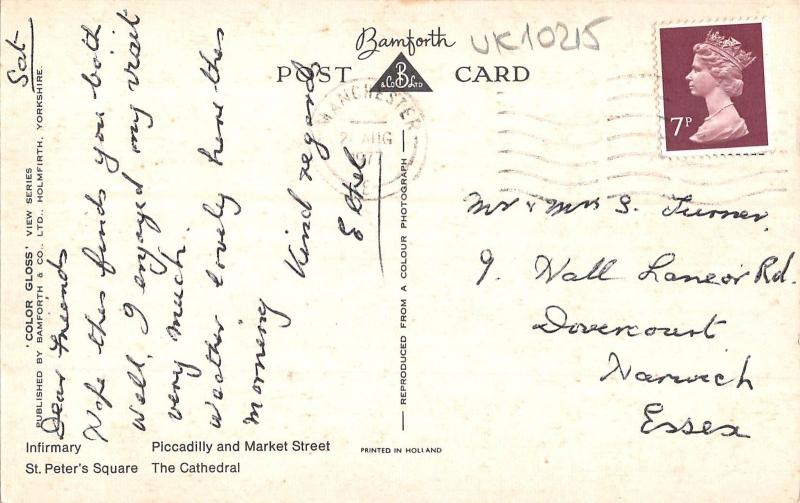 Bamforth
UK10215
POST CARD
B
& Co LTD
MANCHESTER
AUG
7P
'COLOR GLOSS' VIEW SERIES
PUBLISHED BY BAMFORTH & CO., LTD., HOLMFIRTH, YORKSHIRE.
Sat
Dear Friends
Hope this finds you both
well, I enjoyed my visit
very much.
Weather lovely here this
morning
Kind regards
Ethel
REPRODUCED FROM A COLOUR PHOTOGRAPH
Mr & Mrs S. Turner.
9. Hall Lane or Rd.
Dovercourt
Harwich
Essex
Infirmary Piccadilly and Market Street
St. Peter's Square The Cathedral
PRINTED IN HOLLAND